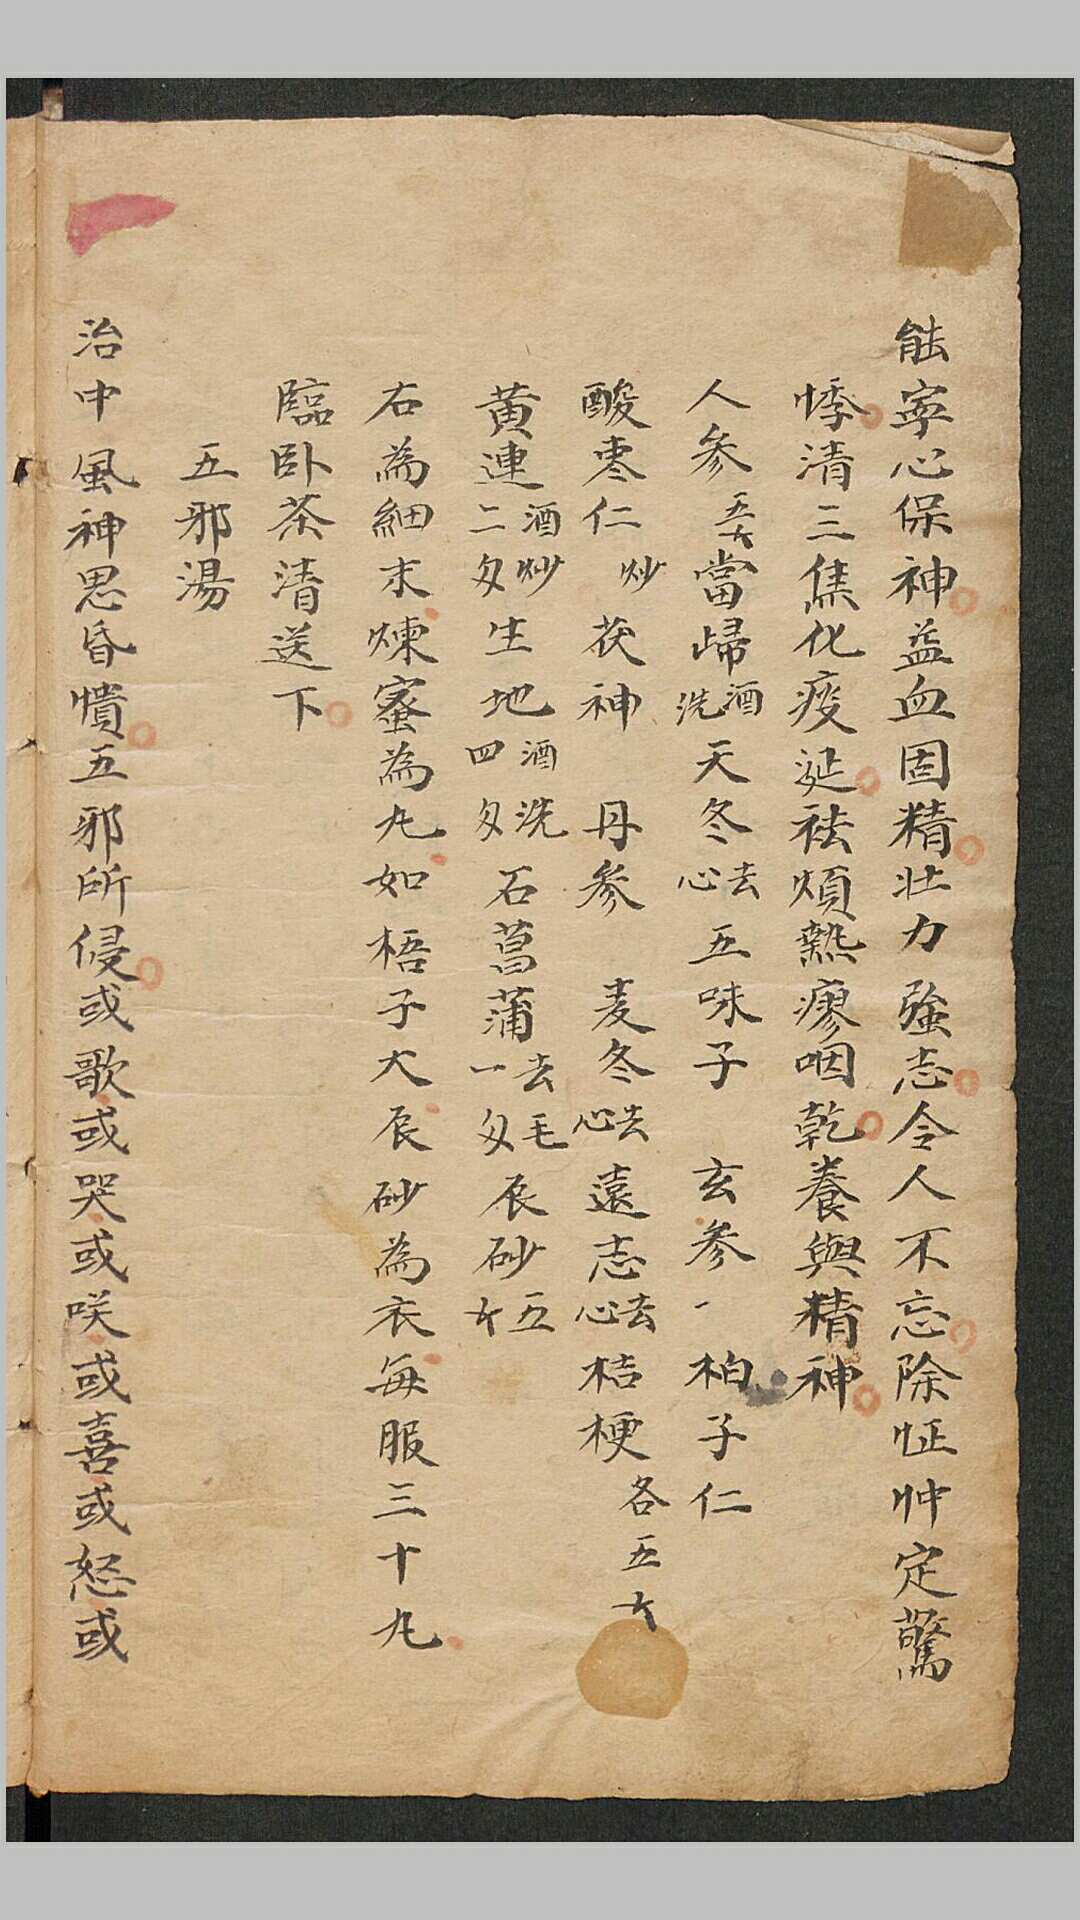 能寧心保神益血固精壯力強志令人不忘除怔忡定驚
悸清三焦化痰涎袪煩熱療咽乾養與精神
人參五分當歸酒洗天冬去心五味子玄參一柏子仁
酸枣仁炒茯神丹參麦冬去心遠志去心桔梗各五分
黄連酒炒二匁生地酒洗四匁石菖蒲去毛一匁辰砂五分
右為細末煉蜜為丸如梧子大辰砂為衣每服三十丸
臨卧茶清送下
五邪湯
治中風神思昏憒五邪所侵或歌或哭或咲或喜或怒或